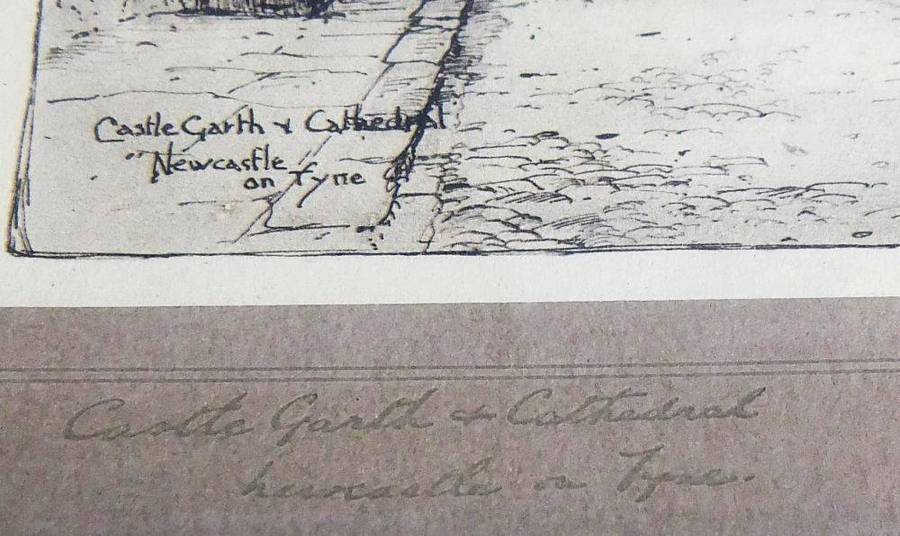 Castle Garth & Cathedral
Newcastle
on Tyne
Castle Garth & Cathedral
newcastle on Tyne.